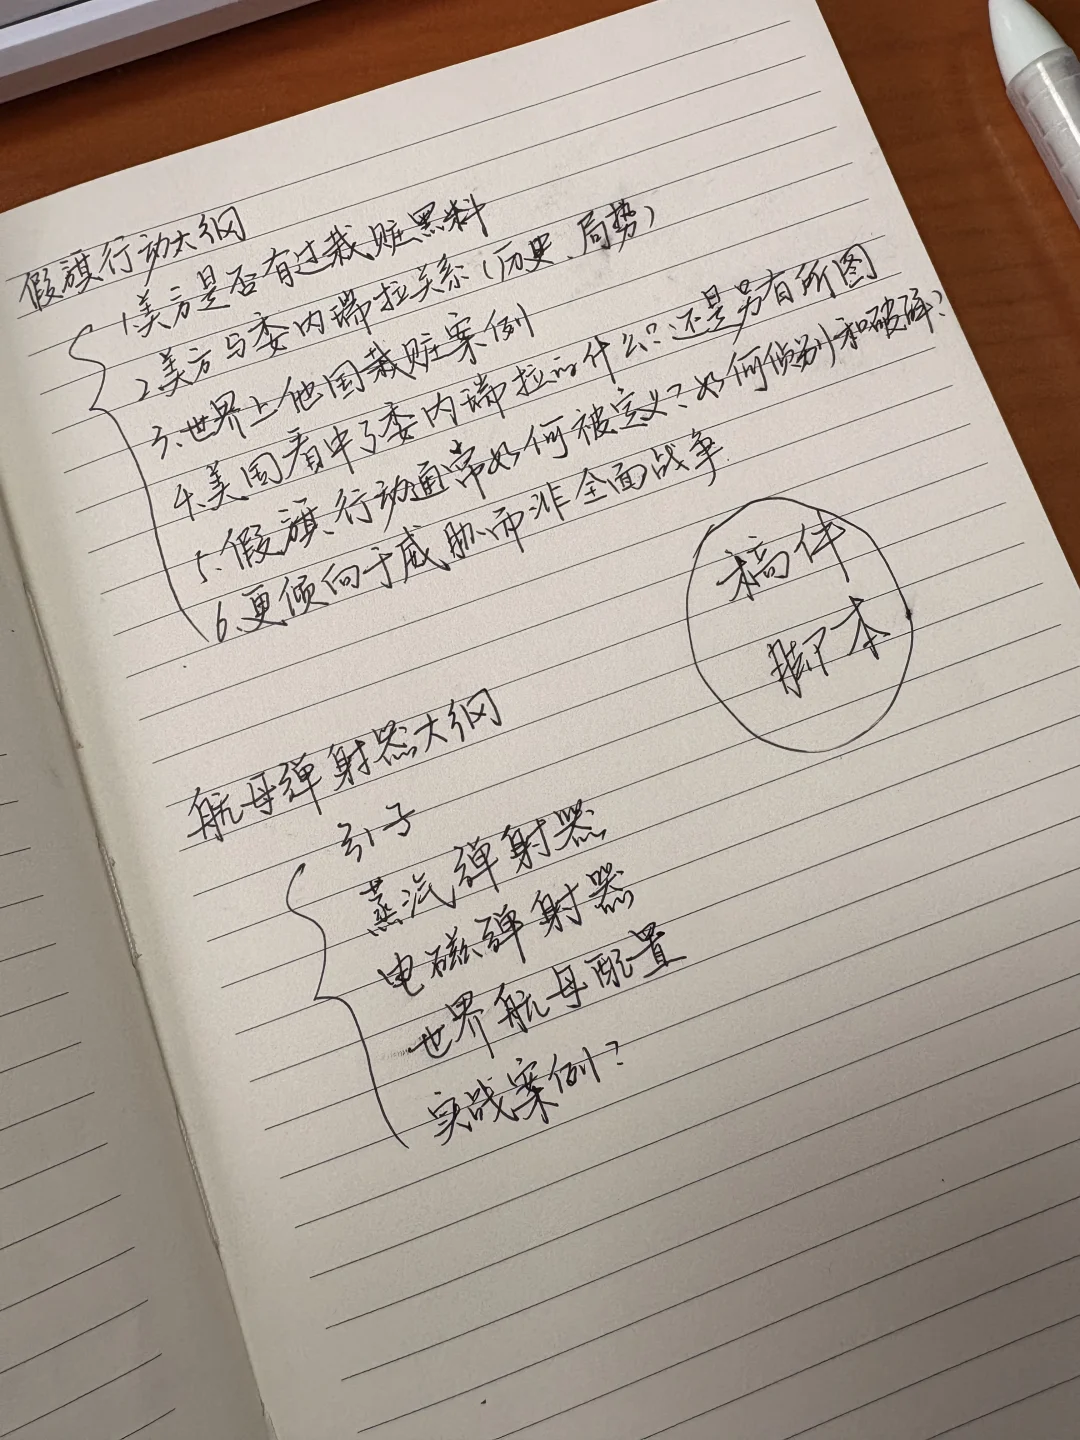 假旗行动大纲
1.美方是否有过栽赃黑料
2.美方与委内瑞拉关系(历史、局势)
3、世界上他国栽赃案例
4.美国看中了委内瑞拉的什么?还是另有所图
5、假旗行动通常如何被定义?如何侦别和破解?
6、更倾向于威胁而非全面战争
稿件
脚本
航母弹射器大纲
引子
蒸汽弹射器
电磁弹射器
世界航母配置
实战案例?